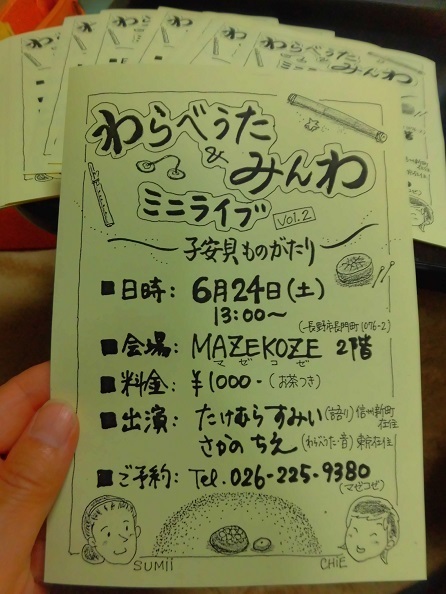 わらべうた
&
みんわ
ミニライブ vol.2
〜子安貝ものがたり〜
■日時: 6月24日(土)
13:00〜
(長野市長門町1076-2)
■会場: MAZEKOZE 2階
マゼコゼ
■料金: ¥1000-(お茶つき)
■出演: たけむらすみい(語り)信州新町在住
さかのちえ(わらべうた・音)東京在住
■ご予約: Tel.026-225-9380
(マゼコゼ)
SUMII CHIE